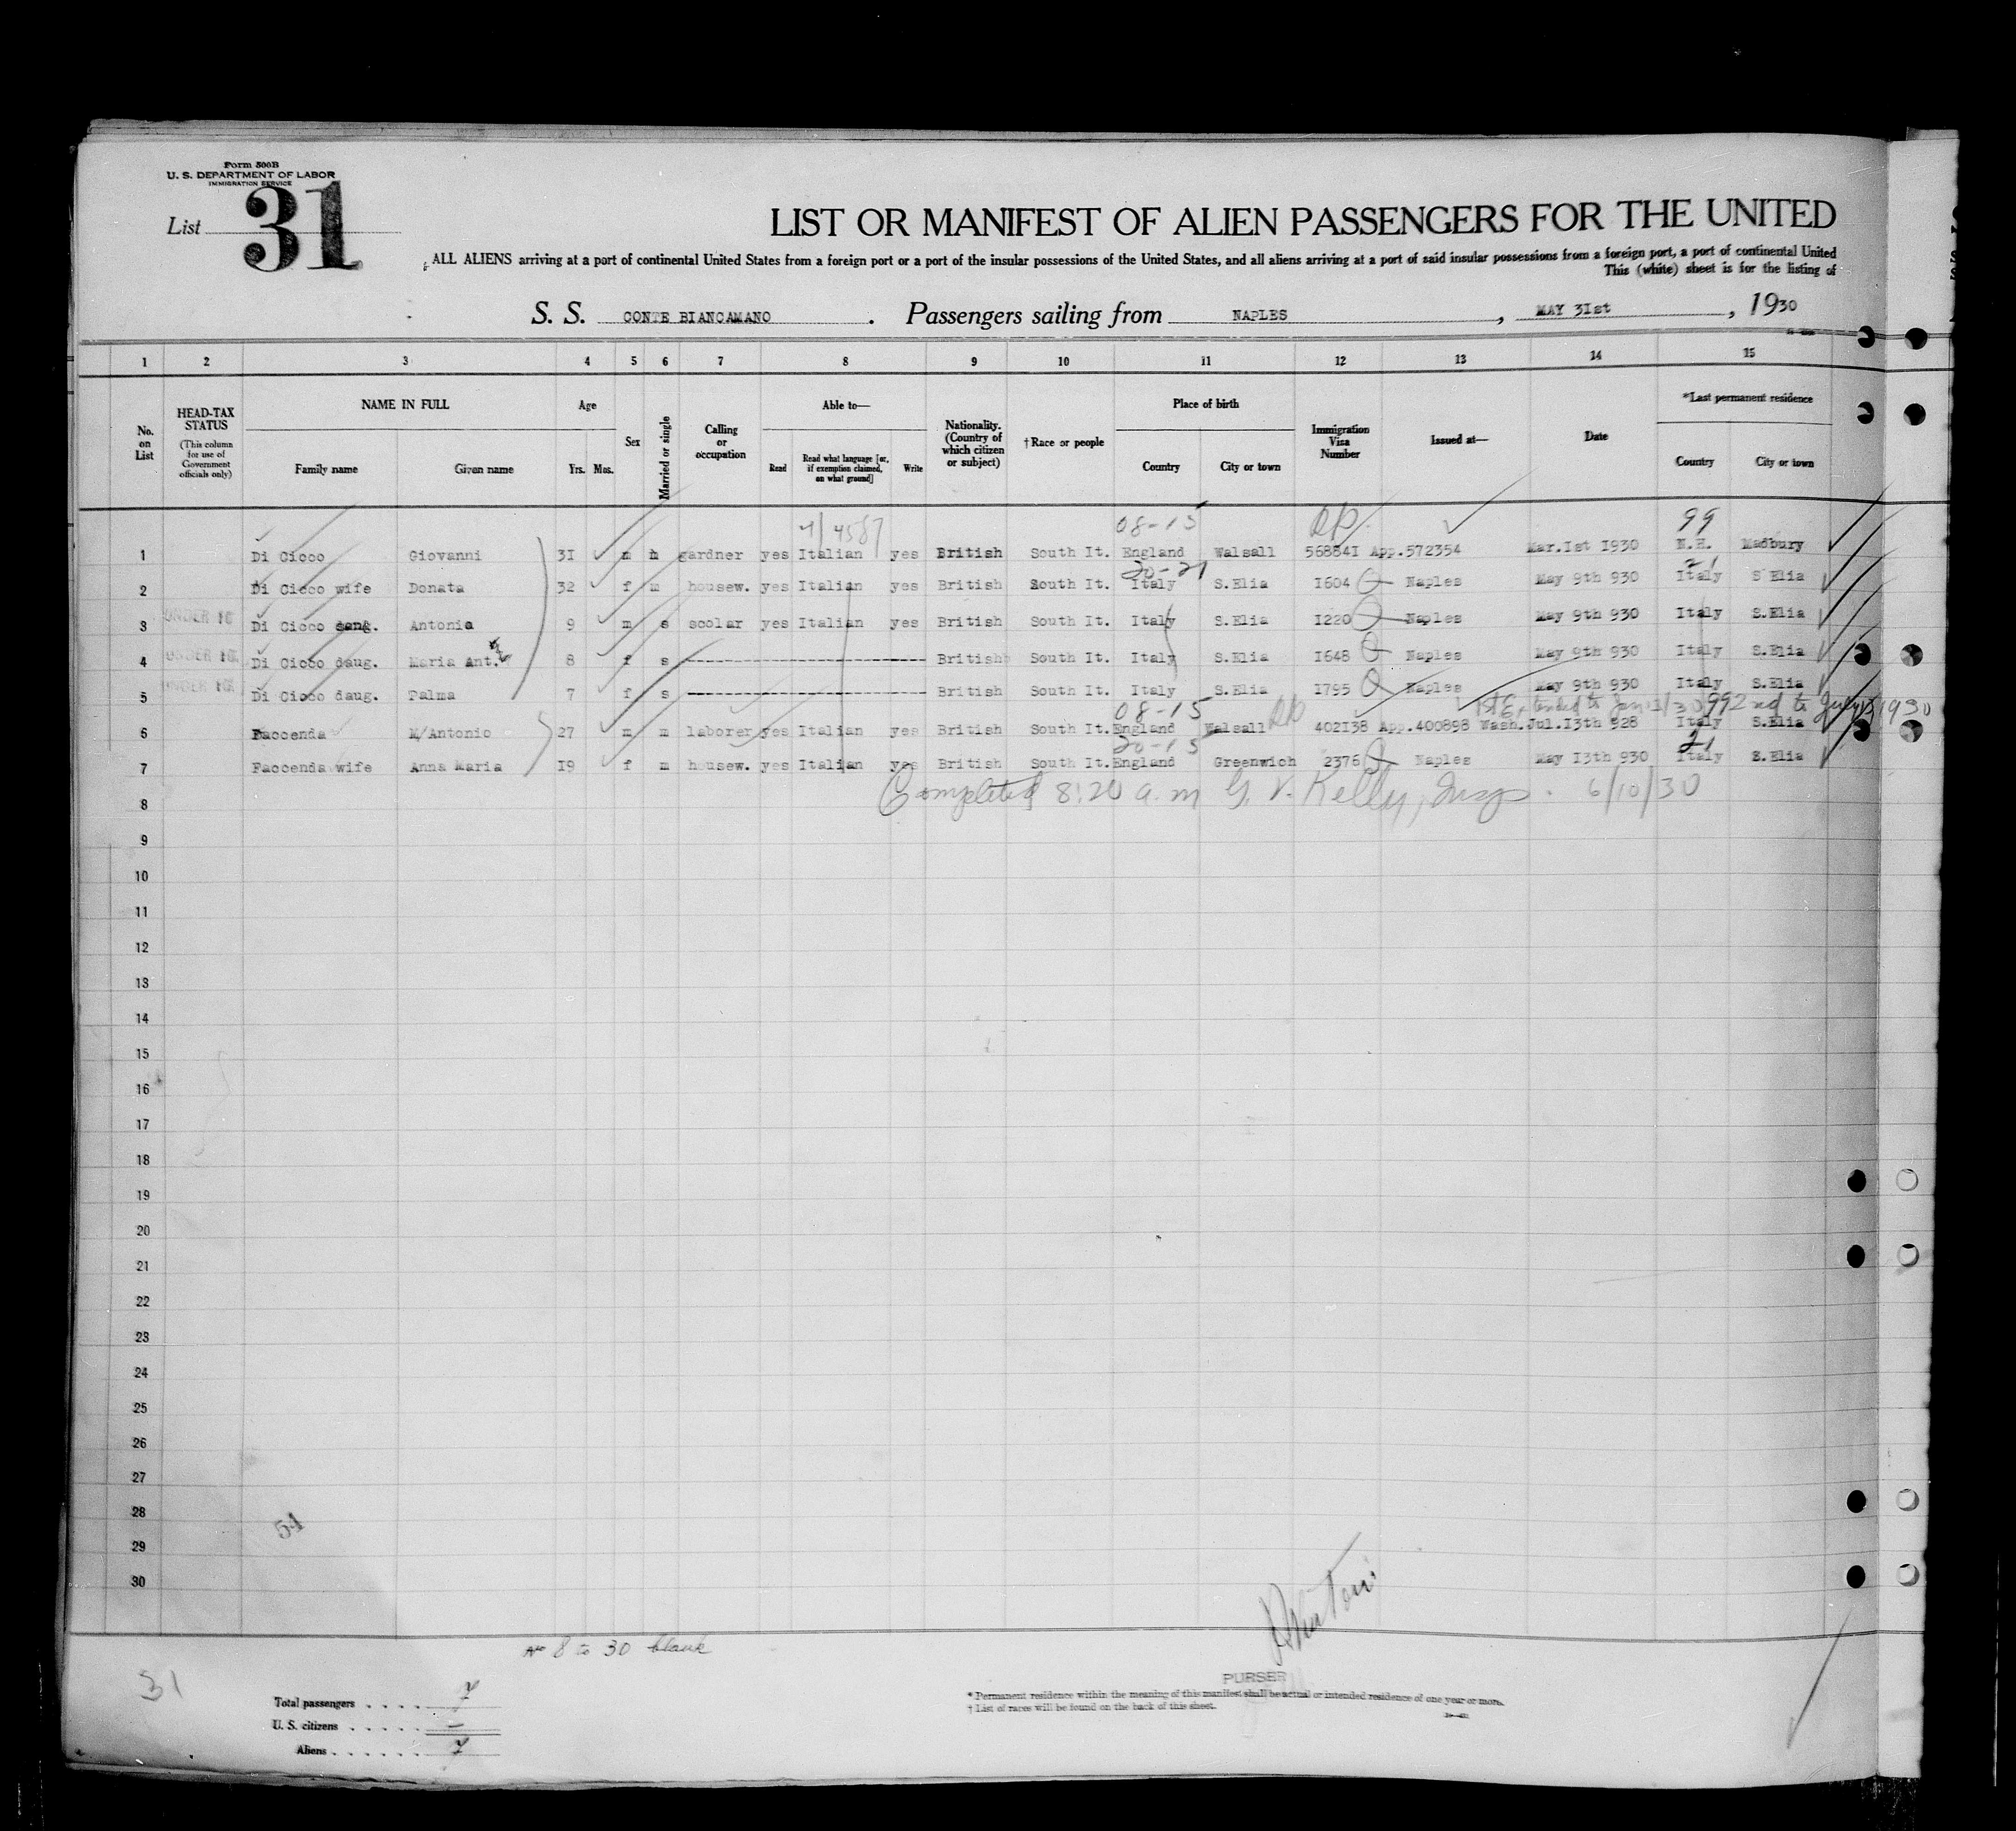 Form 500B
U. S. DEPARTMENT OF LABOR
IMMIGRATION SERVICE
List 31
LIST OR MANIFEST OF ALIEN PASSENGERS FOR THE UNITED
ALL ALIENS arriving at a port of continental United States from a foreign port or a port of the insular possessions of the United States, and all aliens arriving at a port of said insular possessions from a foreign port, a port of continental United
This (white) sheet is for the listing of
S. S. CONTE BIANCAMANO . Passengers sailing from NAPLES , MAY 31st , 1930
1 2 3 4 5 6 7 8 9 10 11 12 13 14 15
No. on List
HEAD-TAX STATUS
(This column for use of Government officials only)
NAME IN FULL
Family name Given name
Age
Yrs. Mos.
Sex
Married or single
Calling or occupation
Able to—
Read Read what language [or, if exemption claimed, on what ground] Write
Nationality. (Country of which citizen or subject)
†Race or people
Place of birth
Country City or town
Immigration Visa Number
Issued at—
Date
*Last permanent residence
Country City or town
08-15 99
1 Di Cicco Giovanni 31 m m gardner yes Italian yes British South It. England Walsall 568841 App.572354 Mar.1st 1930 N.H. Madbury
20-21 21
2 Di Cicco wife Donata 32 f m housew. yes Italian yes British South It. Italy S.Elia 1604 Naples May 9th 930 Italy S Elia
3 UNDER 16 Di Cicco Antonia 9 m s scolar yes Italian yes British South It. Italy S.Elia 1220 Naples May 9th 930 Italy S.Elia
4 UNDER 16 Di Cicco daug. Maria Ant. 8 f s British South It. Italy S.Elia 1648 Naples May 9th 930 Italy S.Elia
5 UNDER 16 Di Cicco daug. Palma 7 f s British South It. Italy S.Elia 1795 Naples May 9th 930 Italy S.Elia
08-15 1st Extended to Jan 13/30 99 2nd to July 13 1930
6 Faccenda M/Antonio 27 m m laborer yes Italian yes British South It. England Walsall 402138 App.400898 Wash. Jul.13th 928 Italy S.Elia
20-15 21
7 Faccenda wife Anna Maria 19 f m housew. yes Italian yes British South It. England Greenwich 2376 Naples May 13th 930 Italy S.Elia
8 Completed 8:20 a.m G. V. Kelly, Insp. 6/10/30
9
10
11
12
13
14
15
16
17
18
19
20
21
22
23
24
25
26
27
28
54
29
30
No 8 to 30 blank
31
PURSER
Total passengers . . . . 7
U. S. citizens . . . . . —
Aliens . . . . . . 7
* Permanent residence within the meaning of this manifest shall be actual or intended residence of one year or more.
† List of races will be found on the back of this sheet.